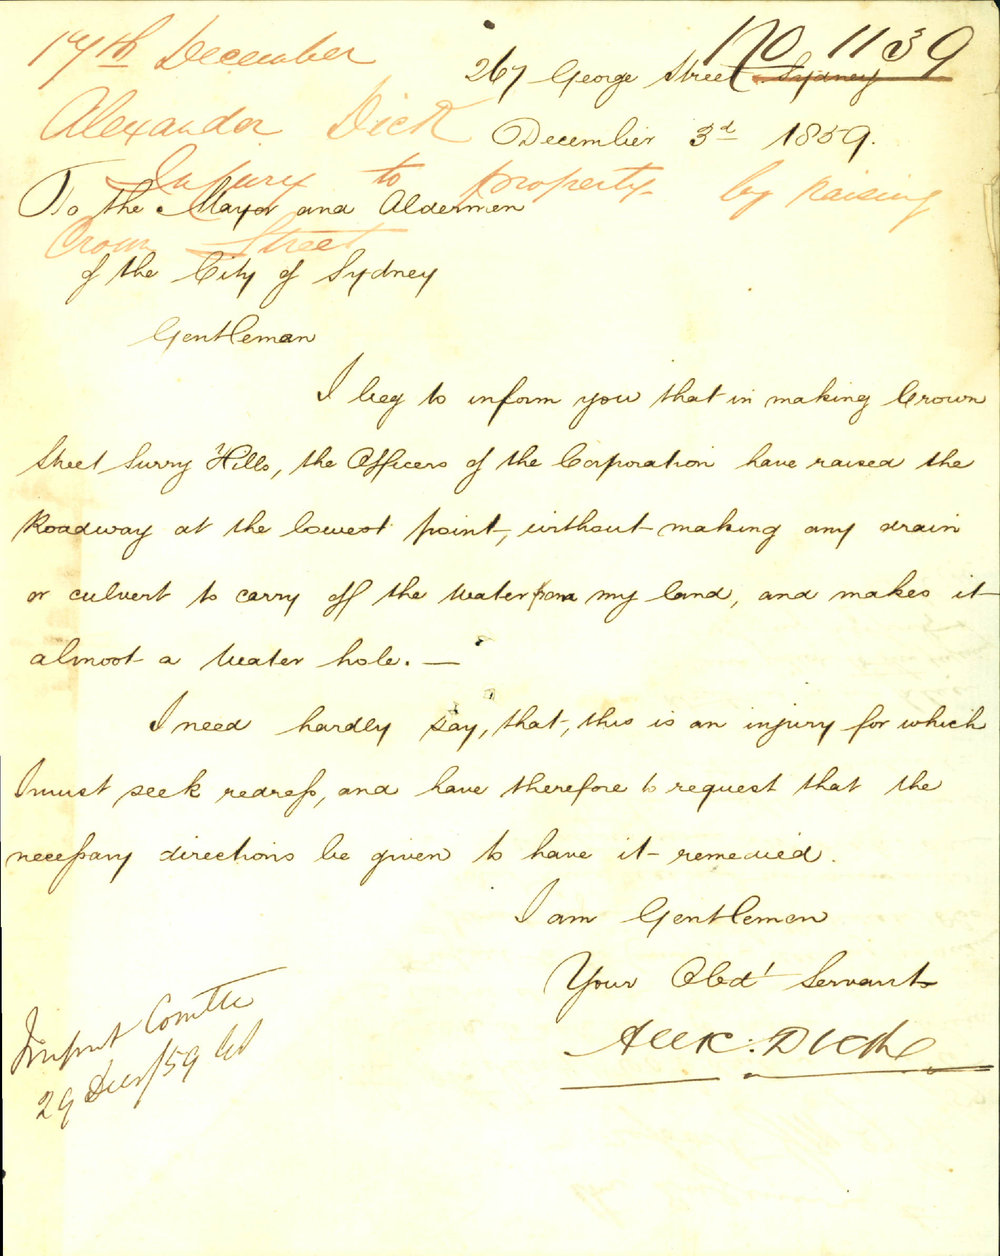 17th December
No 1139
267 George Street Sydney
Alexander Dick
December 3d 1859.
Injury to property by raising
To the Mayor and Aldermen
Crown Street
of the City of Sydney
Gentleman
I beg to inform you that in making Crown
Street Surry Hills, the Officers of the Corporation have raised the
Roadway at the lowest point, without making any drain
or culvert to carry off the Water from my land, and makes it
almost a Water hole. —
I need hardly say, that, this is an injury for which
I must seek redress, and have therefore to request that the
necessary directions be given to have it remedied.
I am Gentlemen
Your Obdt Servant
Alex. Dick
Impt Comttee
29 Decr/59